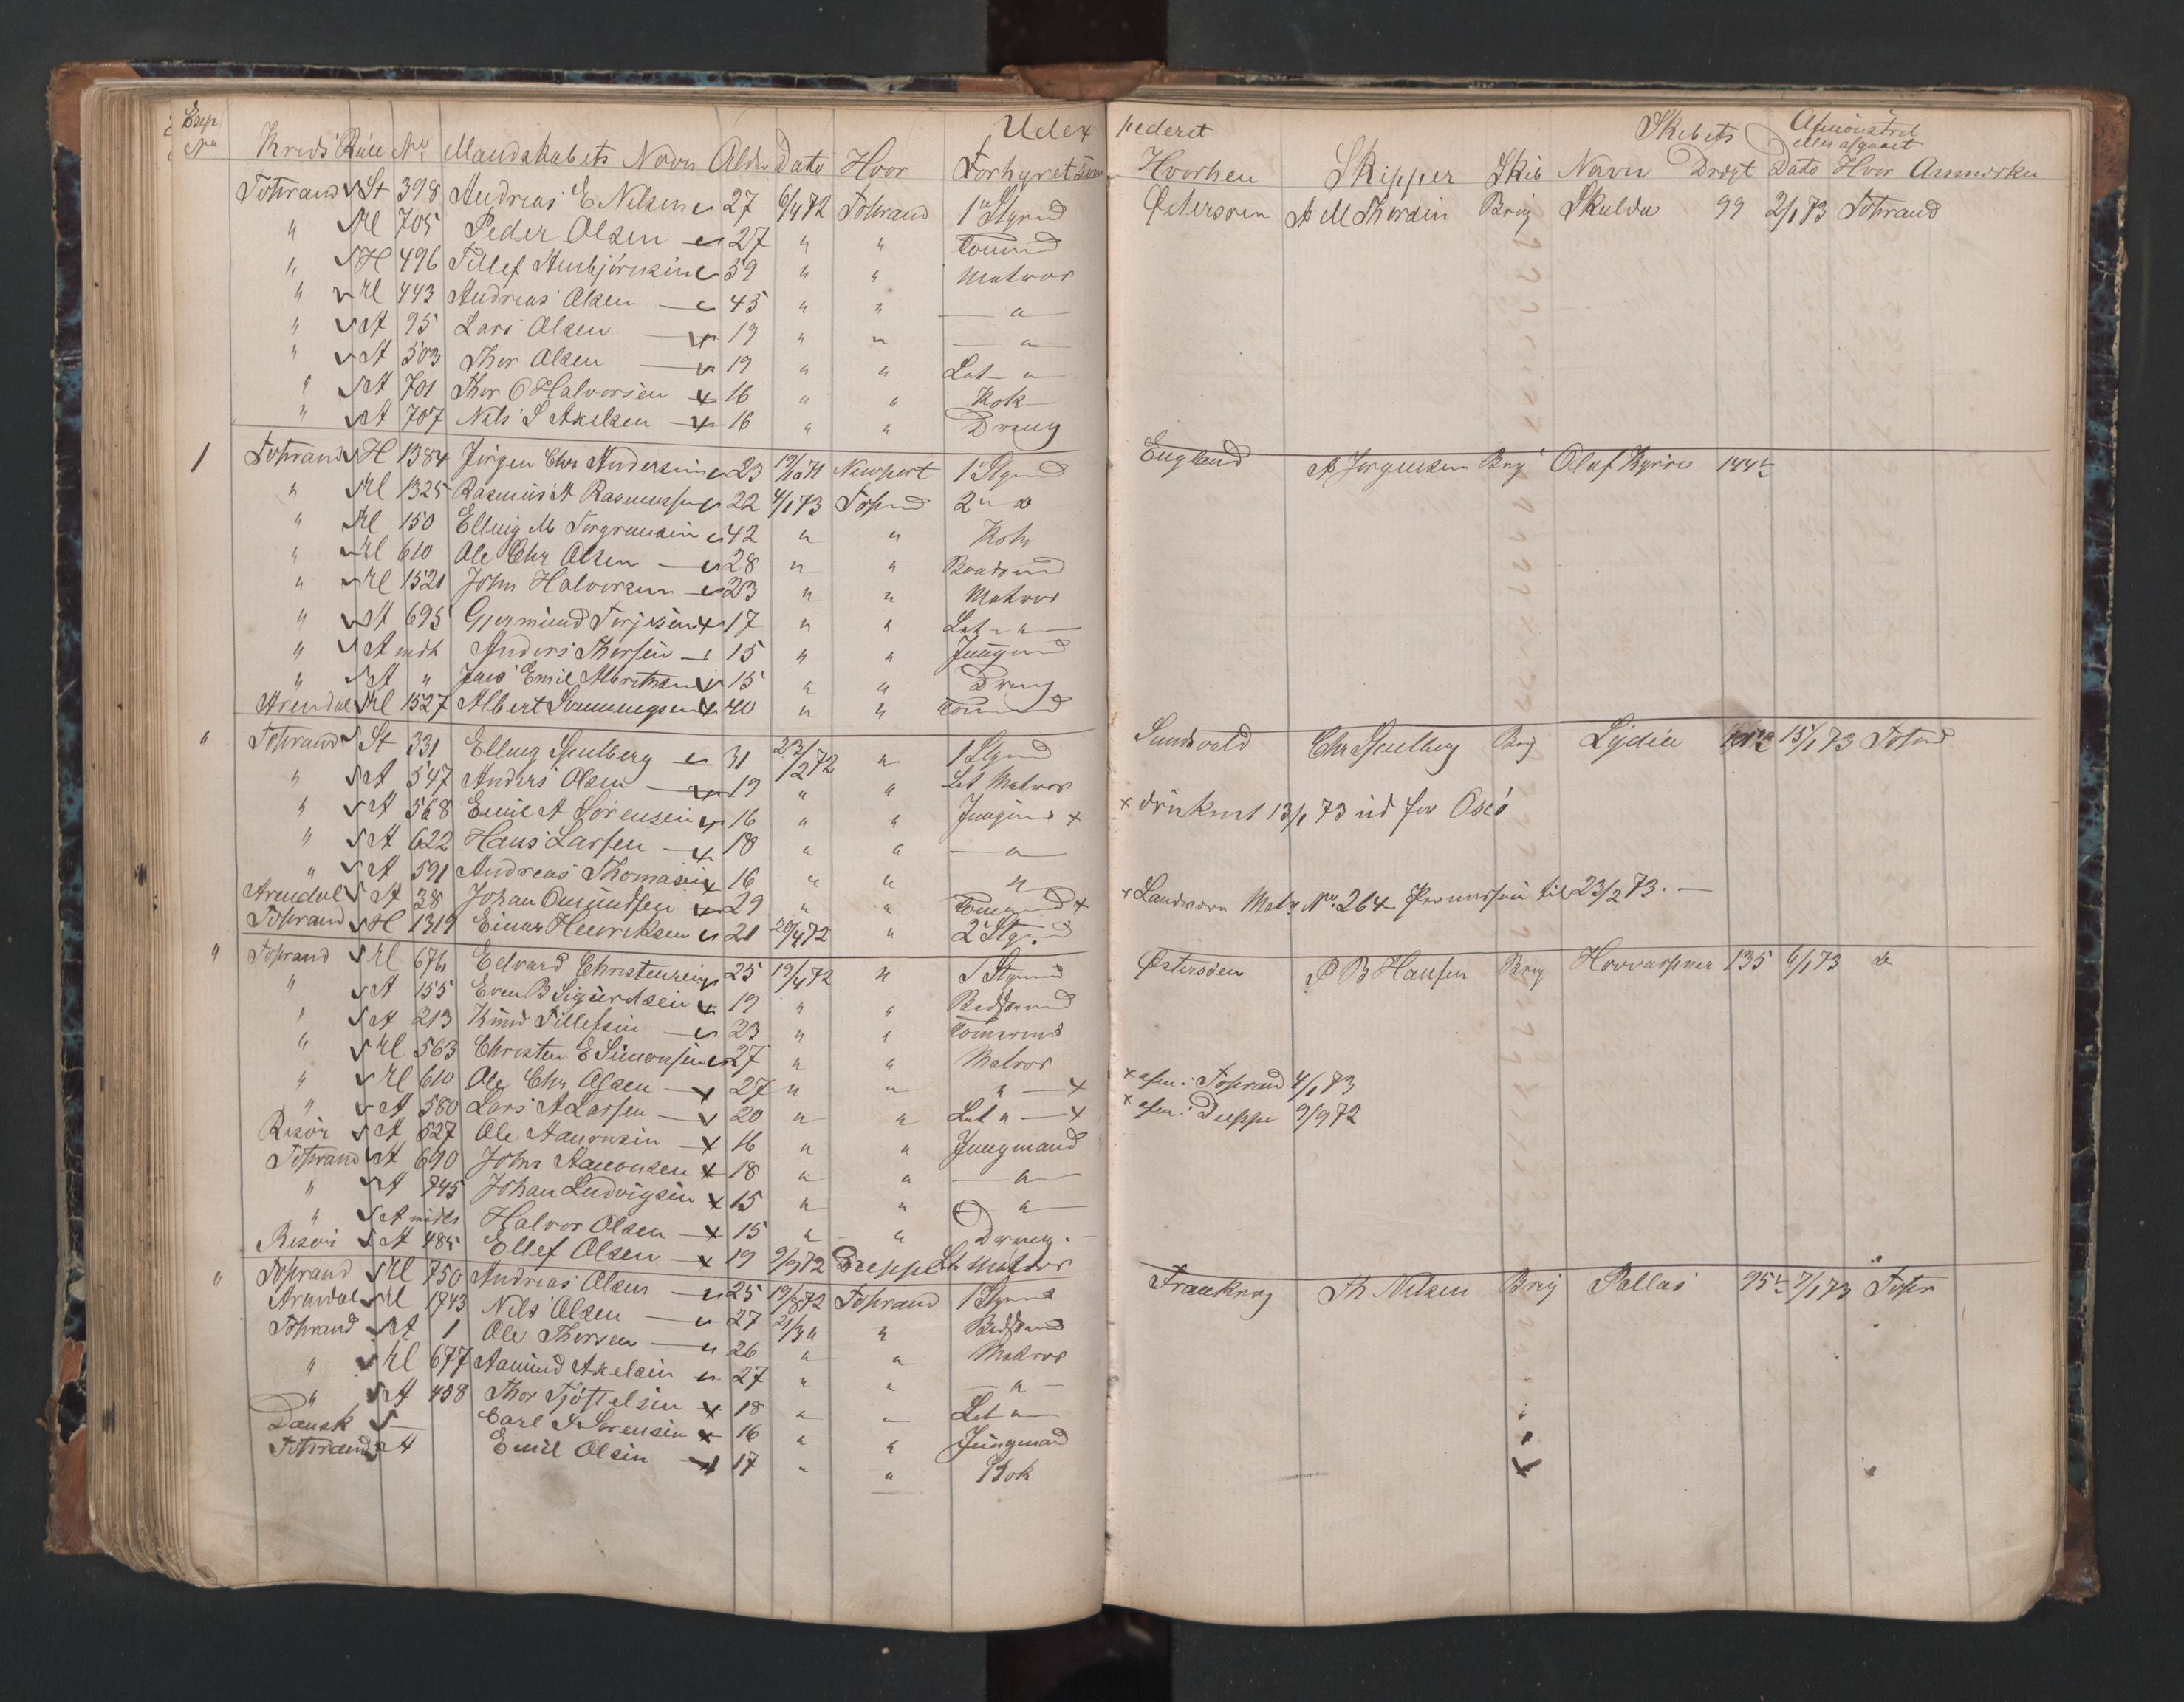 Udex pederet
Exp No Kreds Rulle No Mandskabets Navn Alder Dato Hvor Forhyret som Hvorhen Skipper Skib Skibets Navn Drægt Afmönstret eller afgaaet Dato Hvor Anmerkn
Tvstrand St 398 Andreas E Nilsen 27 6/4 72 Tvstrand 1 Stymd Östersöen A M Thorsen Brig Skulda 99 2/1 73 Tvstrand
" Hl 705 Peder Olsen 27 " " Tömmd
" H 496 Tellef Ambjörnsen 39 " " Matros
" Hl 443 Andreas Olsen 45 " " — " —
" A 95 Lars Olsen 19 " " — " —
" A 503 Thor Olsen 19 " " Let — " —
" A 701 Thor O Halvorsen 16 " " Kok
" A 707 Nils S Axelsen 16 " " Dreng
1 Tvstrand H 1384 Jörgen Chr Andersen 23 19/10 71 Newport 1 Stymd England A Jörgensen Brig Olaf Kyrre 144½
" Hl 1325 Rasmus A Rasmussen 22 4/1 73 Tvstrnd 2 " do
" Hl 150 Elling M Torgrimsen 42 " " Kok
" Hl 610 Ole Chr Olsen 28 " " Baadsmd
" Hl 1521 John Halvorsen 23 " " Matros
" A 695 Gjermund Terjesen 17 " " Let — " —
" A indh Anders Thorsen 15 " " Jungmd
" A " Jens Emil Mortensen 15 " " Dreng
Arendal Hl 1527 Albert Sommersen 40 " " Tömmd
" Tvstrand St 331 Elling Stulberg 31 23/12 72 " 1 Stymd Sundsvald Chr Stulberg Brig Lydia 15/1 73 Tvstrnd
" A 547 Anders Olsen 19 " " Let Matros
" A 568 Emil A Sörensen 16 " " Jungmd x x druknet 13/1 73 ud for Oxö
" A 622 Hans Larsen 18 " " — " —
" A 591 Andreas Thomasen 16 " " "
Arendal A 38 Johan Omundsen 29 " " Tömmd x x Landværn Matr No 264 Permission til 23/2 73. —
Tvstrand H 1319 Einar Henriksen 21 20/4 72 " 2 Stymd
" Tvstrand Hl 676 Edvard Christensen 25 19/4 72 " 1 Stymd Östersöen P B Hansen Brig Hovvarpner 135 6/1 73 do
" A 155 Even B Sigurdsen 19 " " Bådsmd
" A 213 Knud Tellefsen 23 " " Tömmermd
" Hl 563 Christen E Simonsen 27 " " Matros
" Hl 610 Ole Chr Olsen 27 " " " — x x afm. i Tvstrand 4/1 73
" A 580 Lars A Larsen 20 " " Let " — x x afm. i Dieppe 9/9 72
Risör A 527 Ole Aanonsen 16 " " Jungmand
Tvstrand A 690 John Aanonsen 18 " " — " —
" A 745 Johan Ludvigsen 15 " " "
" A indh Halvor Olsen 15 " " Dreng
Risör A 485 Ellef Olsen 19 9/9 72 Dieppe Let Matros
" Tvstrand Hl 750 Andreas Olsen 25 19/8 72 Tvstrand 1 Stymd Frankrig Th Nilsen Brig Pallas 95½ 7/1 73 Tvstr
Arendal Hl 1743 Nils Olsen 27 21/3 " " Bådsmd
Tvstrand A 1 Ole Thorsen 26 " " Matros
" Hl 677 Aamund Axelsen 27 " " — " —
" A 458 Thor Tjöstelsen 18 " " Let "
Dansk — Carl S Sörensen 16 " " Jungmad
Tvstrand A Emil Olsen 17 " " Kok